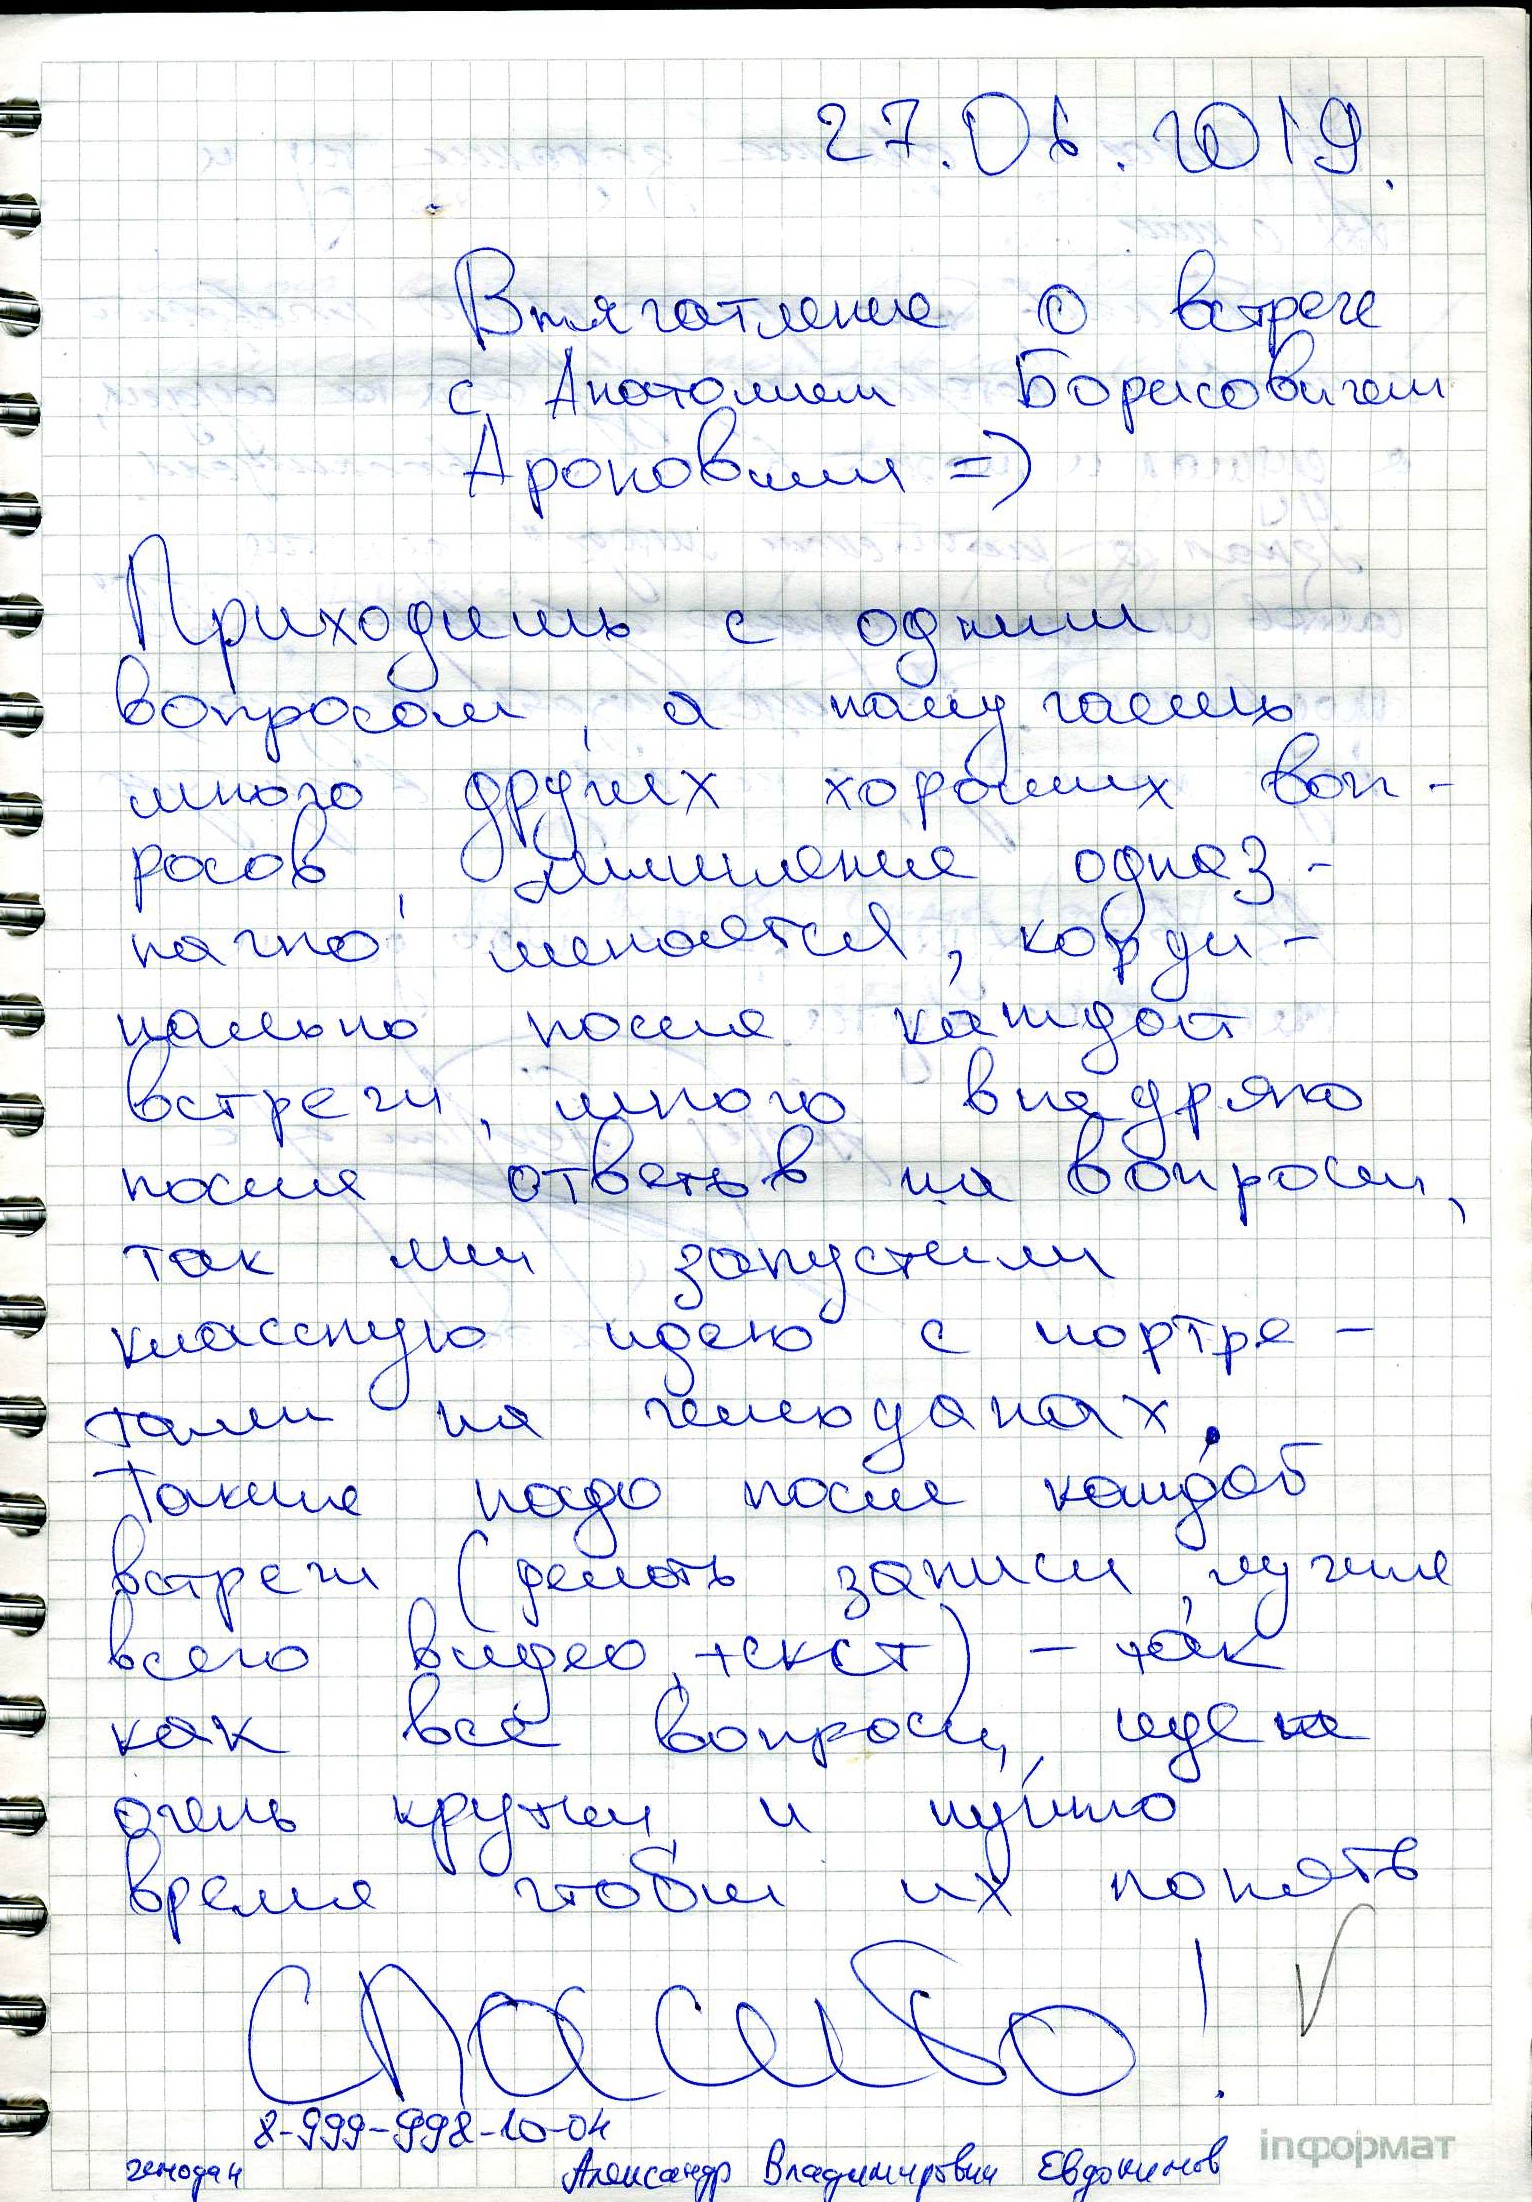 27.06.2019.
Впячатление о встрече
с Анатолием Борисовичем
Ароновким =)
Приходишь с одним
вопросом, а получаешь
много других хороших воп-
росов, мышление одноз-
начно меняется, карди-
нально после каждой
встречи, много внедряю
после ответов на вопросы,
так мы запустили
классную идею с портре-
тами на чемоданах.
Также надо после каждой
встречи (делать записи, лучше
всего видео, текст) – так
как все вопросы, идеи
очень крутые и нужно
время чтобы их понять
Спасибо!
8-999-998-10-04
чемодан Александр Владимирович Евдокимов
inформат